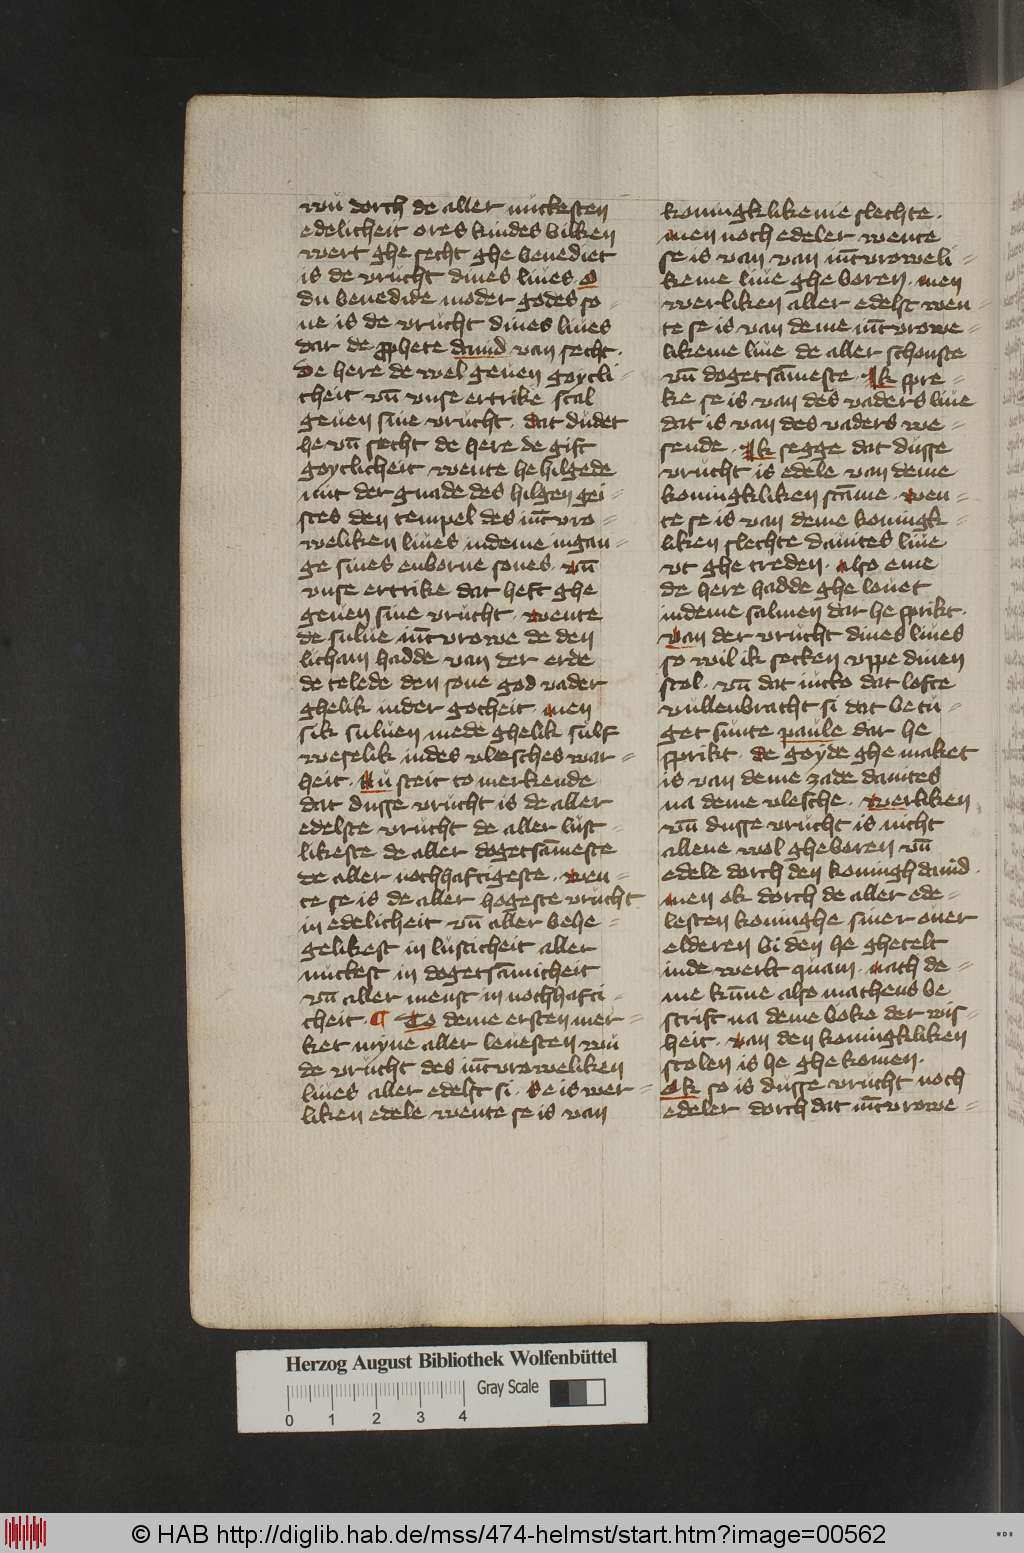 wu dorch de aller nuckesten
edelicheit ores kindes billken
wert ghe secht ghe benediet
is de vrucht dines liues O
du benedide moder godes so -
ne is de vrucht dines liues
dar de p̱phete dauid van secht .
De here de wel geuen goytli -
cheit vn̄ vnse ertrike scal
geuen sine vrucht . dat dudet
he vn̄ secht de here de gift
goytlicheit wente he hilgede
mit der gnade des hilgen gei -
stes den tempel des iūcvro -
weliken liues indeme ingan -
ge sines enborne sones . vn̄
vnse ertrike dat heft ghe
geuen sine vrucht . wente
de sulue iūcvrowe de den
licham hadde van der erde
de telede den sone god vader
ghelik inder gotheit . men
sik suluen mede ghelik sulf
weselik indes vlesches war -
heit . Nu steit to merkende
dat dusse vrucht is de aller
edelste vrucht de aller lust -
likeste de aller dogetsāmeste
de aller nochhaftigeste . wen -
te se is de aller hogeste vrucht
in edelicheit vn̄ aller behe -
gelikest in lusticheit aller
nuckest in dogetsāmicheit
vn̄ aller meust in nochhafti -
cheit . ¶ To deme ersten mer -
ket myne aller leuesten wu
de vrucht des iūcvroweliken
liues aller edelst si . Se is wer -
liken edele wente se is van
koningklikeme slechte .
men noch edeler wente
se is van van iūcvroweli -
keme liue ghe boren . men
werliken aller edelst wen -
te se is van deme iūcvrowe -
likeme liue de aller schonste
vn̄ dogetsāmeste . Ik spre -
ke se is van des vaders liue
dat is van des vaders we -
sende . Ik segge dat dusse
vrucht is edele van deme
koningkliken stāme . wen -
te se is van deme koningk -
liken slechte dauites liue
vt ghe treden . also eme
de here hadde ghe louet
indeme salmen dar he sprikt .
Van der vrucht dines liues
so wil ik setken vppe dinen
stol . vn̄ dat iucko dat lofte
vullenbracht si dat betu -
get sunte paule dar he
sprikt . de goyde ghe maket
is van deme zade dauites
na deme vlesche . werliken
vn̄ dusse vrucht is nicht
allene wol gheboren vn̄
edele dorch den koningh dauid .
men ok dorch de aller ede -
lesten koninghe siner ouer
elderen bi den he ghetelt
inde werlt quam . nach de -
me kūne also matheus be
scrift na deme boke der wis -
heit . van den koningkliken
stolen is he ghe komen .
Ok so is dusse vrucht noch
edeler dorch dat iūcvrowe -
Herzog August Bibliothek Wolfenbüttel
Gray Scale
0 1 2 3 4
© HAB http://diglib.hab.de/mss/474-helmst/start.htm?image=00562